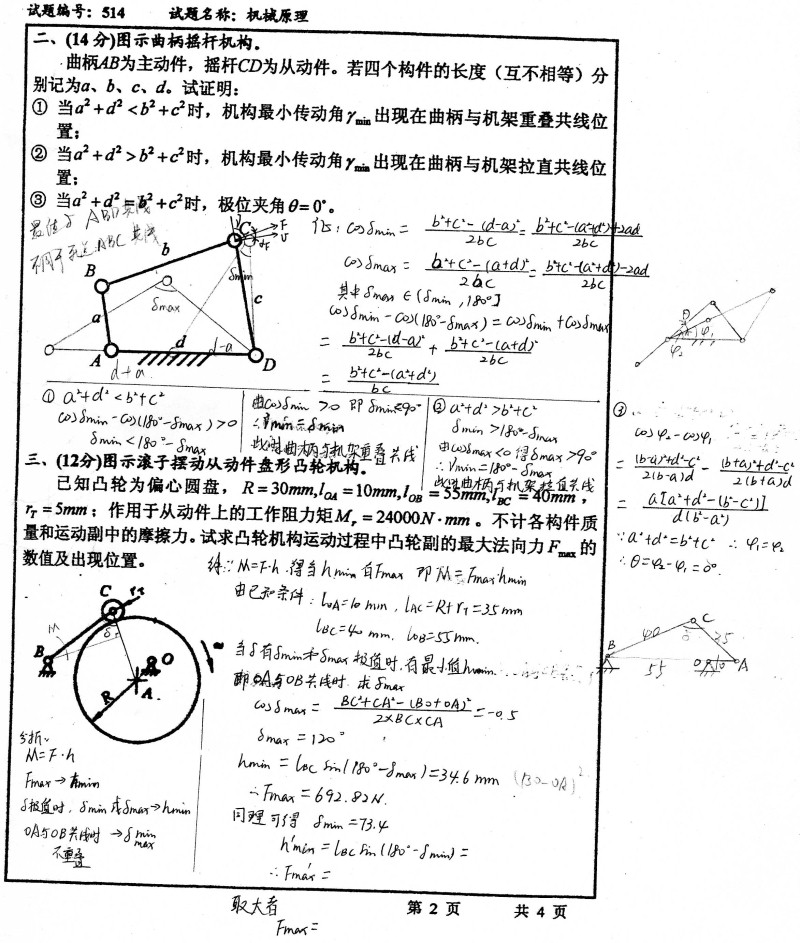 试题编号：514 试题名称：机械原理
二、(14分)图示曲柄摇杆机构。
曲柄AB为主动件，摇杆CD为从动件。若四个构件的长度（互不相等）分
别记为a、b、c、d。试证明：
① 当a²+d²<b²+c²时，机构最小传动角γmin出现在曲柄与机架重叠共线位
置；
② 当a²+d²>b²+c²时，机构最小传动角γmin出现在曲柄与机架拉直共线位
置；
③ 当a²+d²=b²+c²时，极位夹角θ=0°。
最值δ ABD共线
不同于极位ABC共线
B
b
C
F
V
δmin
a
δmax
c
A
d
d-a
D
d+a
证：cosδmin = b²+c²-(d-a)²/2bc = b²+c²-(a²+d²)+2ad/2bc
cosδmax = b²+c²-(a+d)²/2bc = b²+c²-(a²+d²)-2ad/2bc
其中δmax∈(δmin,180°]
cosδmin-cos(180°-δmax)=cosδmin+cosδmax
= b²+c²-(d-a)²/2bc + b²+c²-(a+d)²/2bc
= b²+c²-(a²+d²)/bc
θ
φ₁
φ₂
① a²+d²<b²+c²
cosδmin-cos(180°-δmax)>0
δmin<180°-δmax
由cosδmin>0 即δmin<90°
∴γmin=δmin
此时曲柄与机架重叠共线
② a²+d²>b²+c²
δmin>180°-δmax
由cosδmax<0 得δmax>90°
∴γmin=180°-δmax
此时曲柄与机架拉直共线
③
cosφ₂-cosφ₁
= (b-a)²+d²-c²/2(b-a)d - (b+a)²+d²-c²/2(b+a)d
= a[a²+d²-(b²-c²)]/d(b²-a²)
∵a²+d²=b²+c² ∴φ₁=φ₂
∴θ=φ₂-φ₁=0°
三、(12分)图示滚子摆动从动件盘形凸轮机构。
已知凸轮为偏心圆盘，R=30mm,lOA=10mm,lOB=55mm,lBC=40mm，
rT=5mm；作用于从动件上的工作阻力矩Mr=24000N·mm。不计各构件质
量和运动副中的摩擦力。试求凸轮机构运动过程中凸轮副的最大法向力Fmax的
数值及出现位置。
解：∵M=F·h 得当hmin有Fmax 即M=Fmax hmin
由已知条件：lOA=10mm, lAC=R+rT=35mm
lBC=40mm. lOB=55mm.
当δ有δmin和δmax极值时，有最小值hmin
即OA与OB共线时 求δmax
cosδmax = BC²+CA²-(BO+OA)²/2×BC×CA =-0.5
δmax=120°
hmin=lBC sin(180°-δmax)=34.6mm
∴Fmax=692.82N.
同理可得 δmin=73.4
h'min=lBC sin(180°-δmin)=
∴F'max=
C
rT
M
δ
B
O
A
R
B
40
C
δ
35
55
O
10
A
分析：
M=F·h
Fmax→hmin
δ极值时，δmin或δmax→hmin
OA与OB共线时→δmin
max
不重叠
第 2 页 共 4 页
取大者
Fmax=